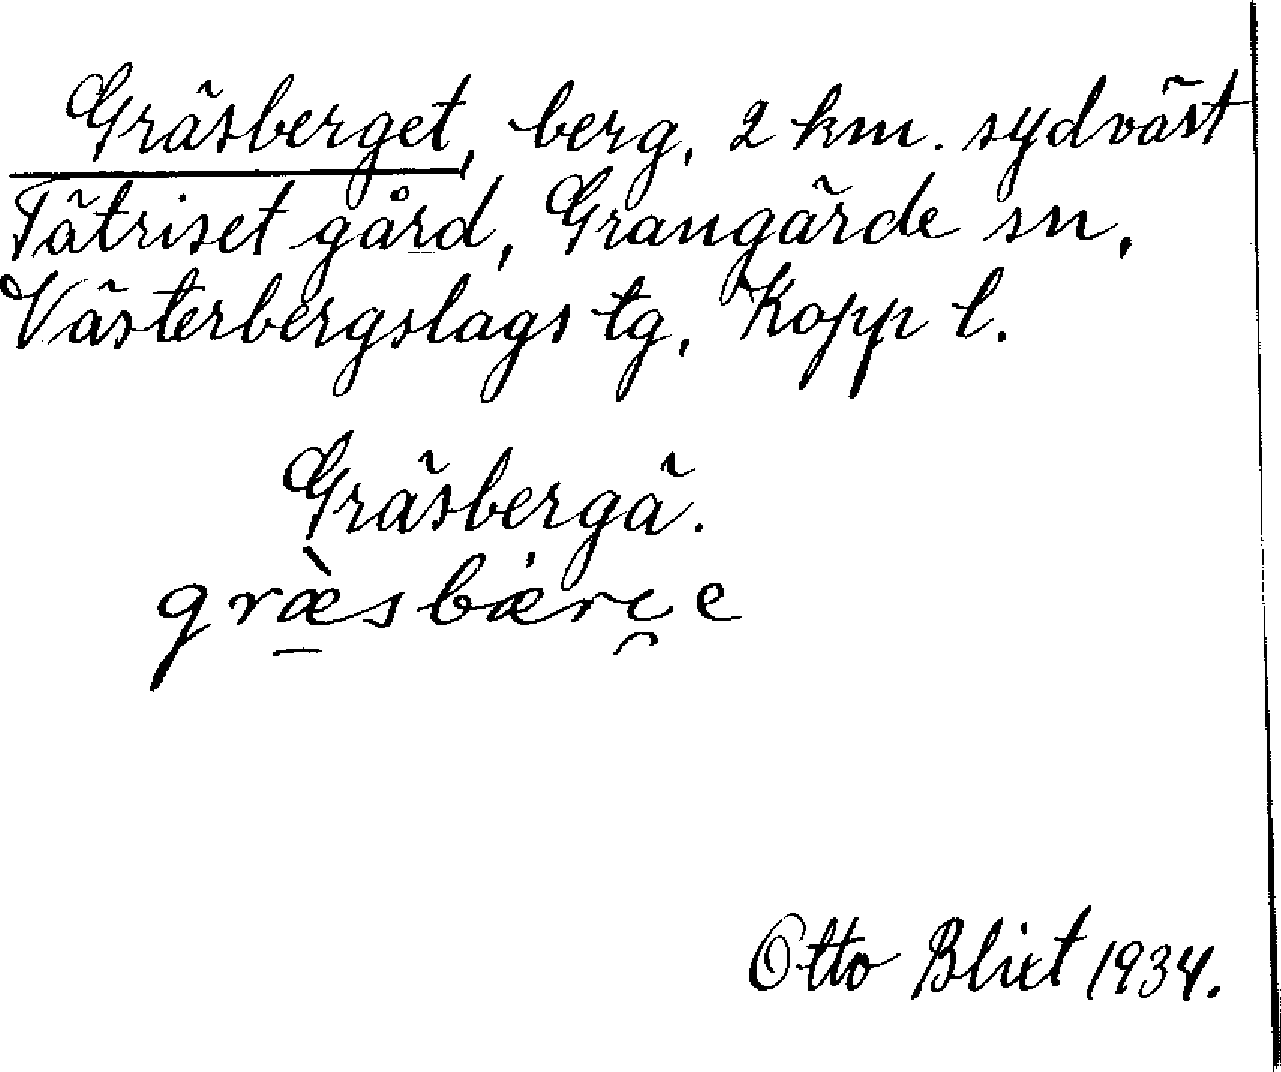 Gräsberget, berg, 2 km. sydväst
Tätriset gård, Grangärde sn,
Västerbergslags tg, Kopp l.
Gräsbergä.
græ̠̀sbærc̯e
Otto Blixt 1934.